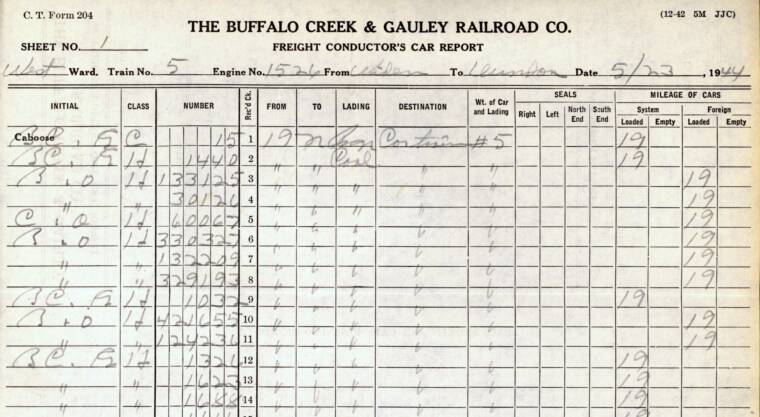 C. T. Form 204
(12-42 5M JJC)
THE BUFFALO CREEK & GAULEY RAILROAD CO.
SHEET NO. 1
FREIGHT CONDUCTOR'S CAR REPORT
West Ward. Train No. 5 Engine No. 1526 From To Dundon Date 5/23, 1944
INITIAL CLASS NUMBER Rec'd Ck. FROM TO LADING DESTINATION Wt. of Car and Lading SEALS MILEAGE OF CARS
Right Left North End South End System Foreign
Loaded Empty Loaded Empty
Caboose B.C. & G C 15 1 19 #5 19
B.C. & G 1440 2 " " Coal " " 19
B & O 133125 3 " " " " " 19
" " 30126 4 " " " " " 19
C & O 60067 5 " " " " " 19
B & O 330327 6 " " " " " 19
" " 132209 7 " " " " " 19
" " 329193 8 " " " " " 19
B.C. & G 1032 9 " " " " " 19
B & O 421655 10 " " " " " 19
" " 124236 11 " " " " " 19
B.C. & G 1326 12 " " " " " 19
" " 1623 13 " " " " " 19
" " 1688 14 " " " " " 19